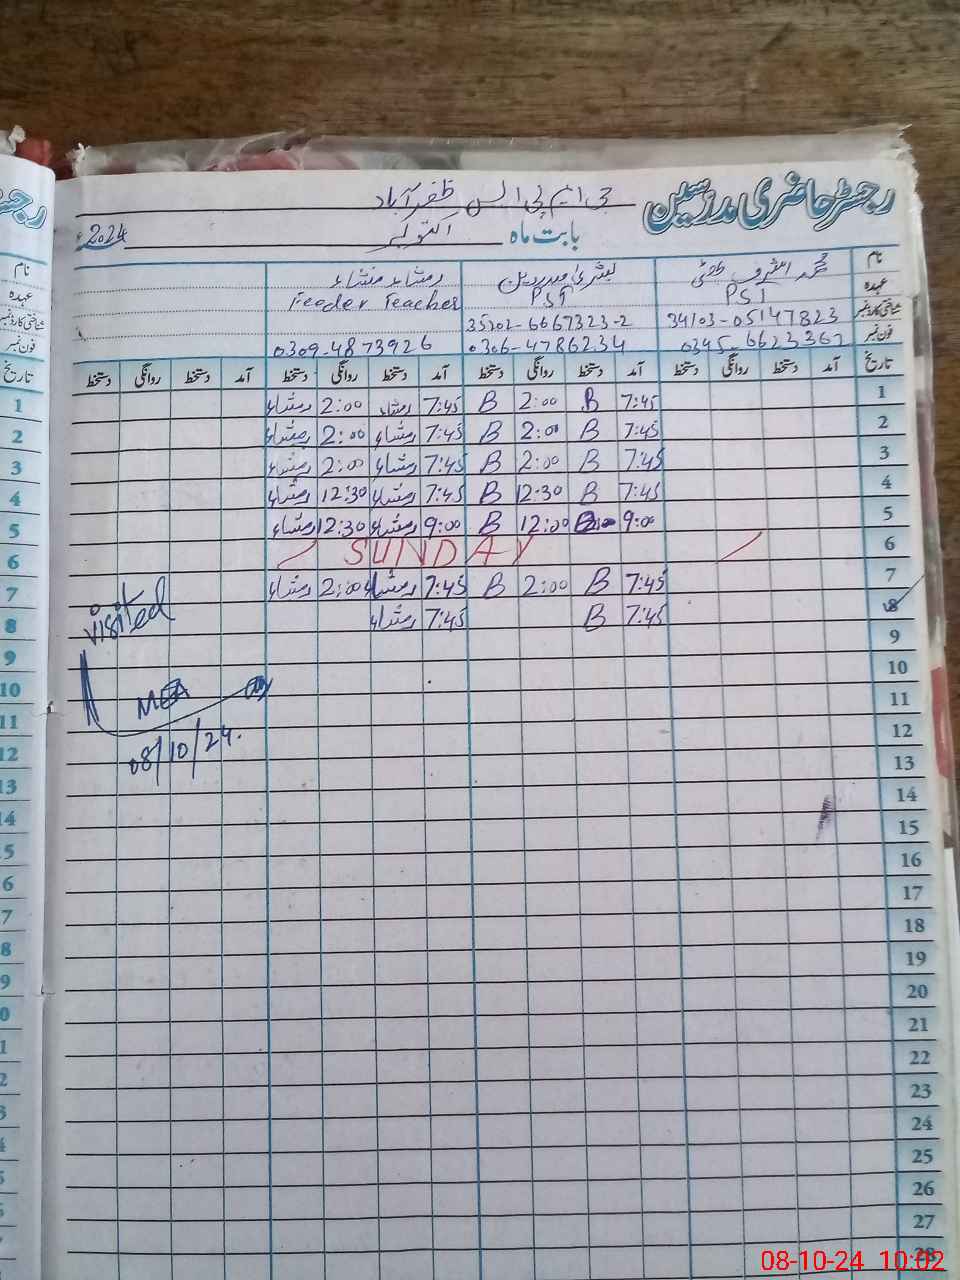 رجسٹر حاضری مدرسین
جی ایم پی ایس ظفرآباد
بابت ماہ اکتوبر 2024ء
نام محمد اشرف بشریٰ رمشاء منشاء
عہدہ PST PST Feeder Teacher
شناختی کارڈ نمبر 34103-05147823 35202-6667323-2
فون نمبر 0345-6623362 0306-4786234 0309-4873926
تاریخ آمد دستخط روانگی دستخط آمد دستخط روانگی دستخط آمد دستخط روانگی دستخط آمد دستخط روانگی دستخط
1 7:45 B 2:00 B 7:45 رمشاء 2:00 رمشاء 1
2 7:45 B 2:00 B 7:45 رمشاء 2:00 رمشاء 2
3 7:45 B 2:00 B 7:45 رمشاء 2:00 رمشاء 3
4 7:45 B 12:30 B 7:45 رمشاء 12:30 رمشاء 4
5 9:00 B 12:00 B 9:00 رمشاء 12:30 رمشاء 5
6 SUNDAY 6
7 7:45 B 2:00 B 7:45 رمشاء 2:00 رمشاء 7
8 7:45 B 7:45 رمشاء 8
visited
9 9
10 10
MEA
11 11
08/10/24.
12 12
13 13
14 14
15
16
17
18
19
20
21
22
23
24
25
26
27
28
08-10-24 10:02